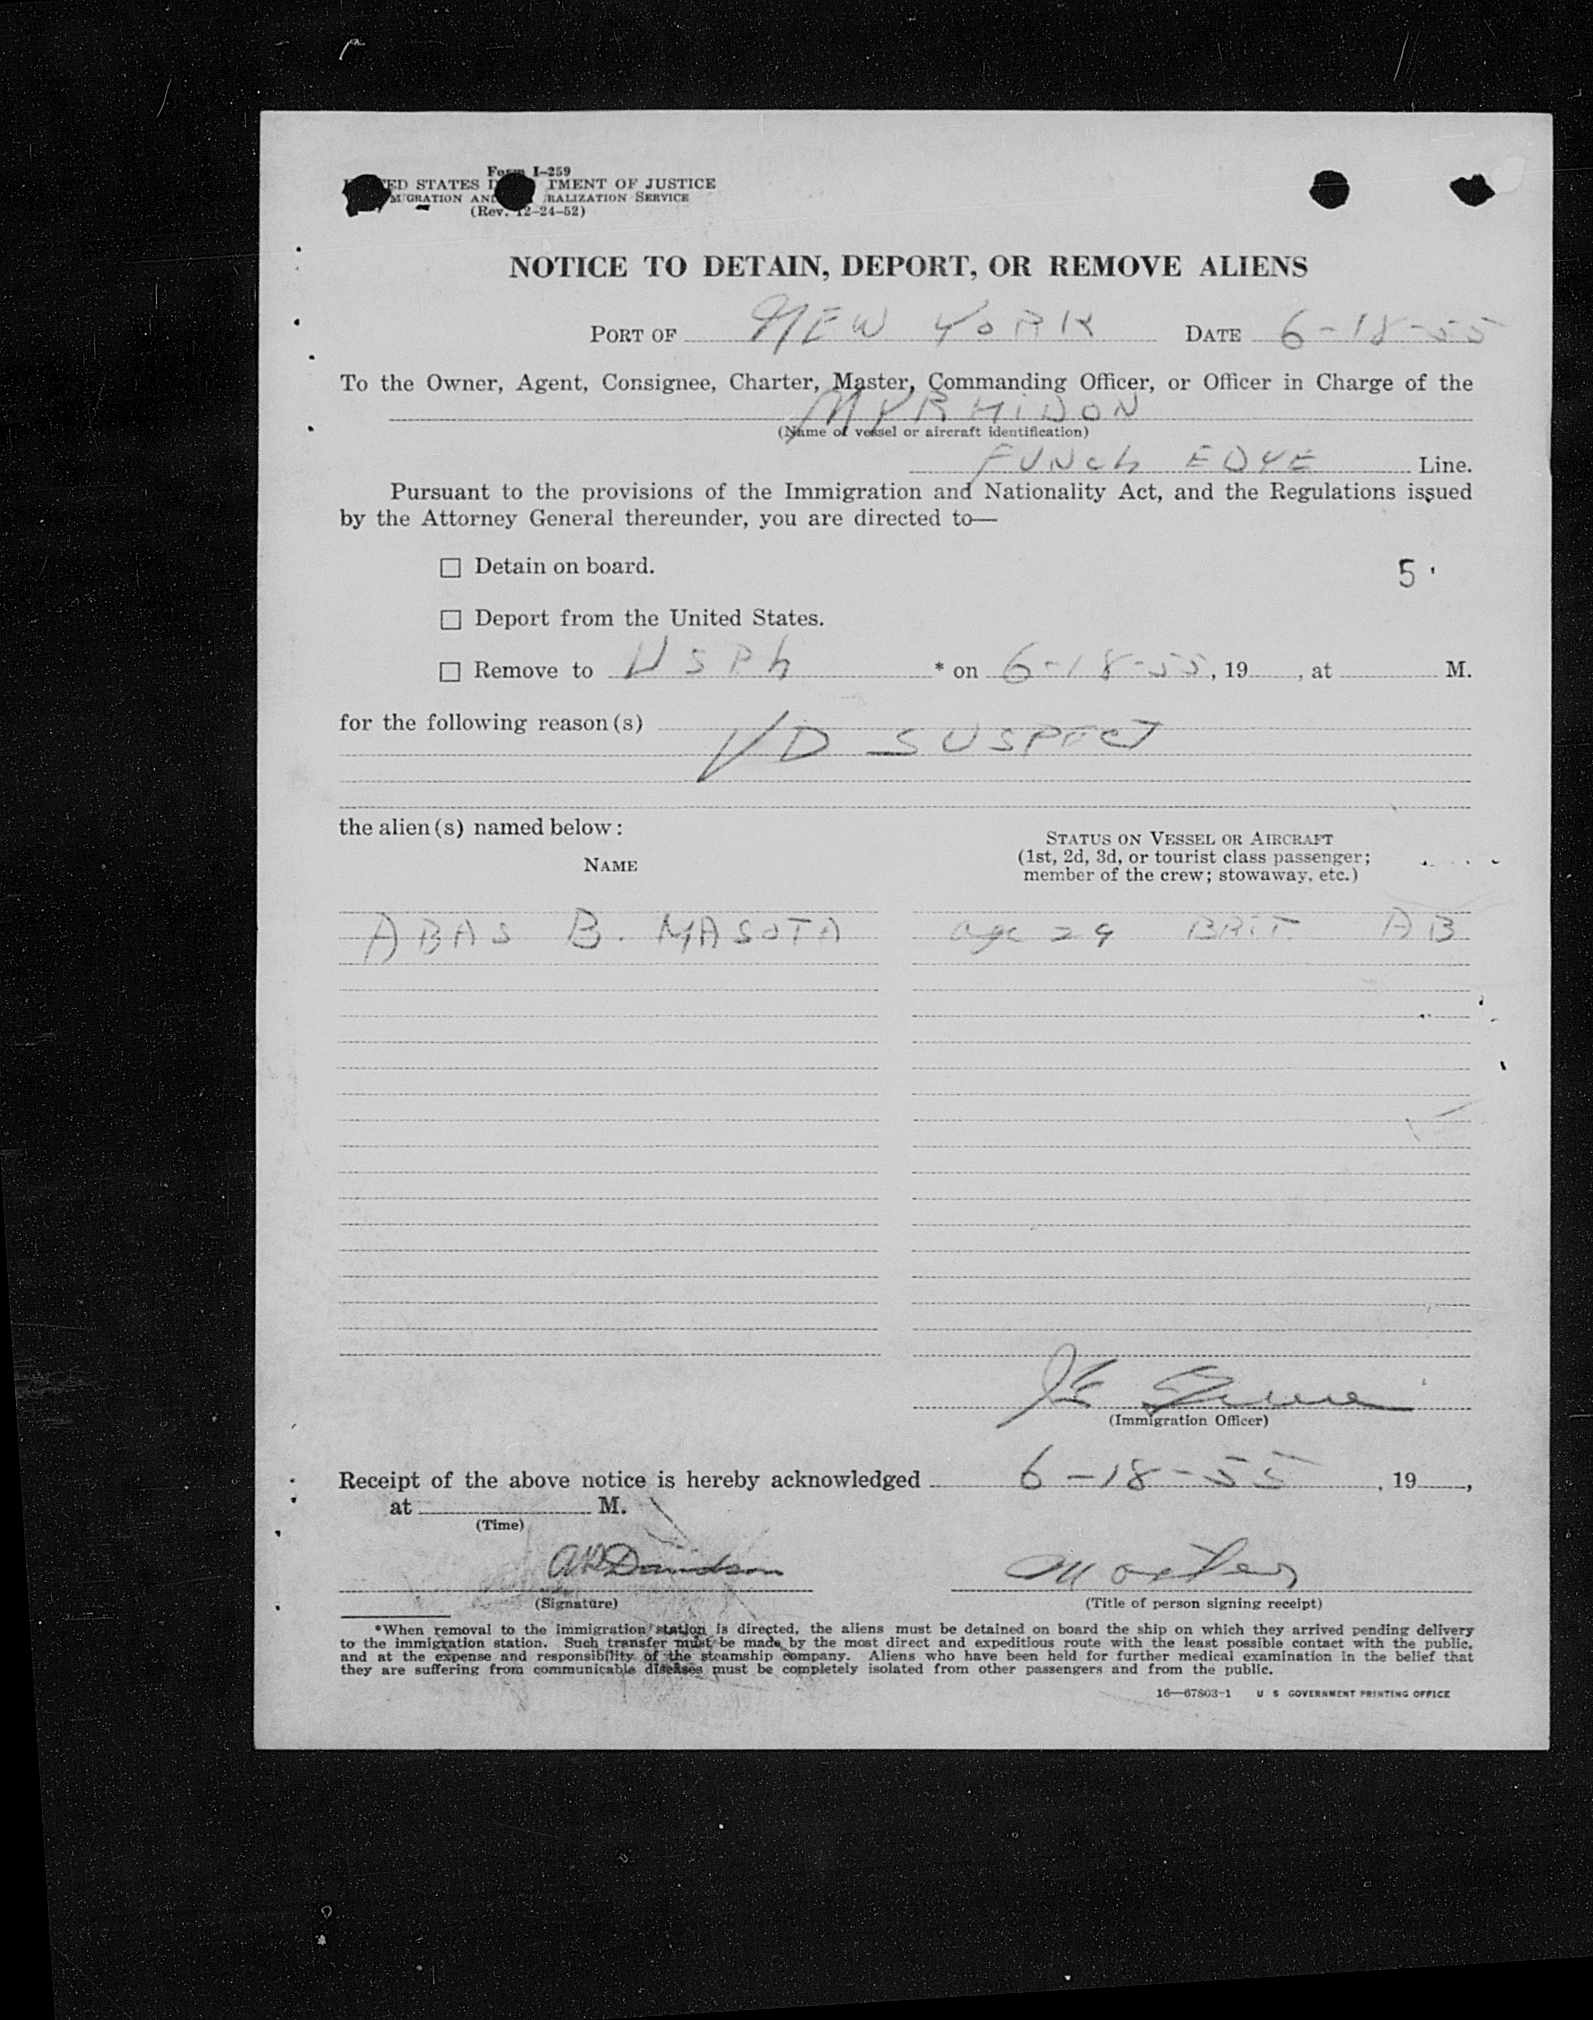 Form I-259
ED STATES D TMENT OF JUSTICE
MIGRATION AND RALIZATION SERVICE
(Rev. 12-24-52)
NOTICE TO DETAIN, DEPORT, OR REMOVE ALIENS
PORT OF NEW YORK DATE 6-18-55
To the Owner, Agent, Consignee, Charter, Master, Commanding Officer, or Officer in Charge of the
MYRMIDON
(Name of vessel or aircraft identification)
FUNCh EDYE Line.
Pursuant to the provisions of the Immigration and Nationality Act, and the Regulations issued
by the Attorney General thereunder, you are directed to—
☐ Detain on board.
5
☐ Deport from the United States.
☐ Remove to USPh * on 6-18-55, 19 , at M.
for the following reason(s)
V/D SUSPECT
the alien(s) named below:
STATUS ON VESSEL OR AIRCRAFT
NAME (1st, 2d, 3d, or tourist class passenger;
member of the crew; stowaway, etc.)
ABAS B. MASOTA age 29 BRIT. AB
(Immigration Officer)
Receipt of the above notice is hereby acknowledged 6-18-55, 19 ,
at M.
(Time)
Davidson Master
(Signature) (Title of person signing receipt)
*When removal to the immigration station is directed, the aliens must be detained on board the ship on which they arrived pending delivery
to the immigration station. Such transfer must be made by the most direct and expeditious route with the least possible contact with the public,
and at the expense and responsibility of the steamship company. Aliens who have been held for further medical examination in the belief that
they are suffering from communicable diseases must be completely isolated from other passengers and from the public.
16—67803-1 U S GOVERNMENT PRINTING OFFICE